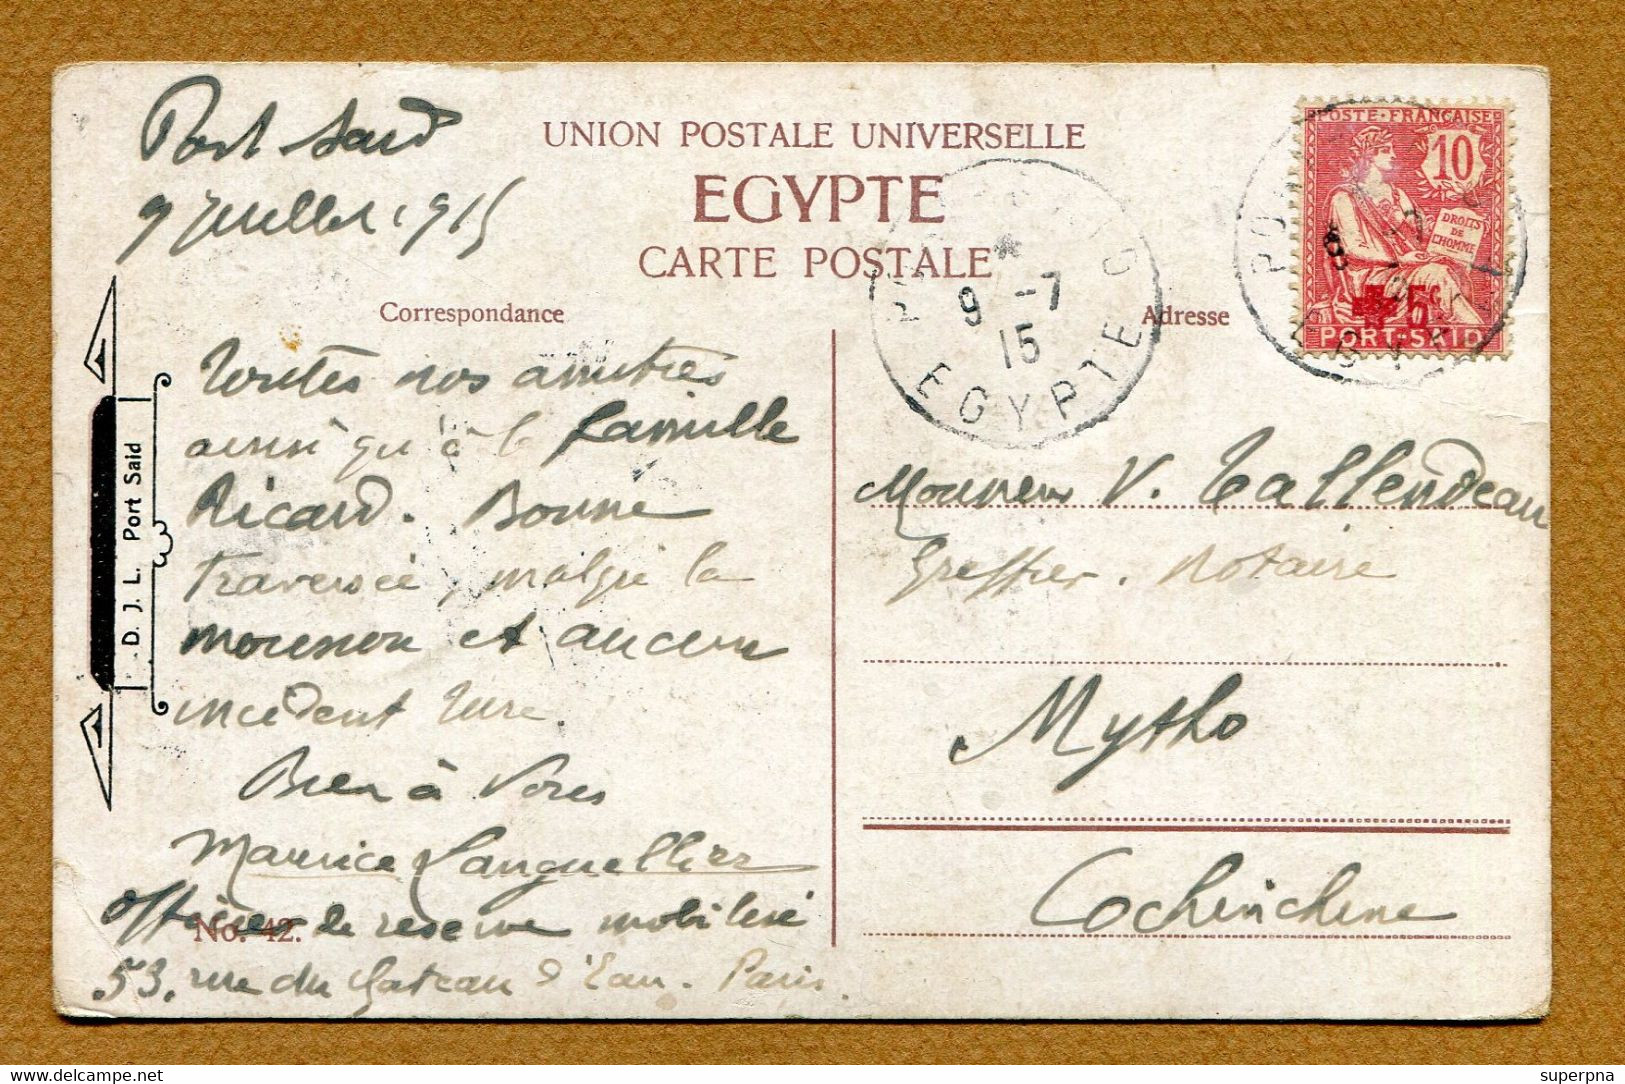 Port Said
9 juillet 1915
UNION POSTALE UNIVERSELLE
EGYPTE
CARTE POSTALE
Correspondance
Adresse
Toutes nos amitiés
ainsi qu'à la famille
Ricard. Bonne
traversée, malgré la
mousson et aucun
incident
Bien à Vous
Maurice Languellier
Officier de réserve mobilisé
No. 42.
53, rue du Château d'Eau. Paris.
D. J. L. Port Said
9 -7
15
EGYPTE
POSTE FRANÇAISE
10
DROITS
DE
L'HOMME
5c
PORT-SAID
Monsieur V. Tallendeau
Greffier. Notaire
Mytho
Cochinchine
delcampe.net
superpna